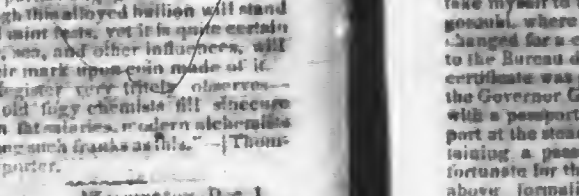 gh this alloyed bullion will stand
mint tests, yet it is quite certain
, sea, and other influences, will
eir mark upon coin made of it.
egister very tritely observes—
old fogy chemists fill sinecure
fat salaries, modern alchemists
ng such franks as this." —[Thom-
porter.
Dec. 1
take myself to
where
changed for a
to the Bureau
certificate was
the Governor G
with a passport
port at the steam
taining a pass
fortunate for th
above formali